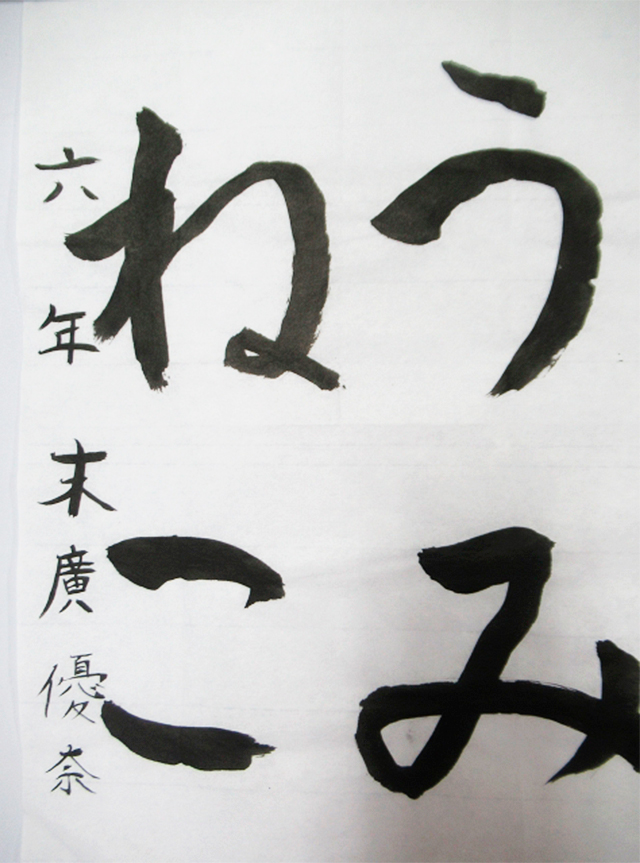 うみ
ねこ
六年 末廣優奈